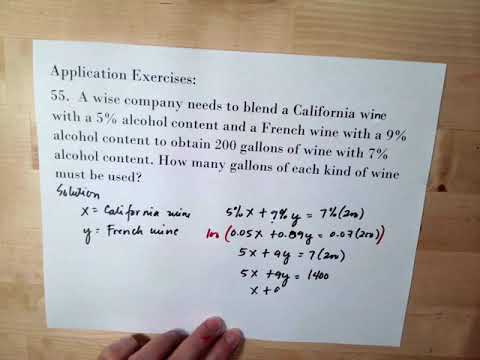 Application Exercises:
55. A wise company needs to blend a California wine
with a 5% alcohol content and a French wine with a 9%
alcohol content to obtain 200 gallons of wine with 7%
alcohol content. How many gallons of each kind of wine
must be used?
Solution
x = California wine
y = French wine
5%x + 9%y = 7%(200)
100 (0.05x + 0.09y = 0.07(200))
5x + 9y = 7(200)
5x + 9y = 1400
x + 0